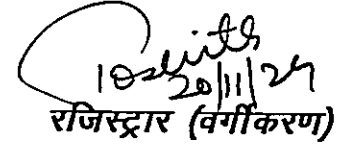 20/11/24
रजिस्ट्रार (वर्गीकरण)